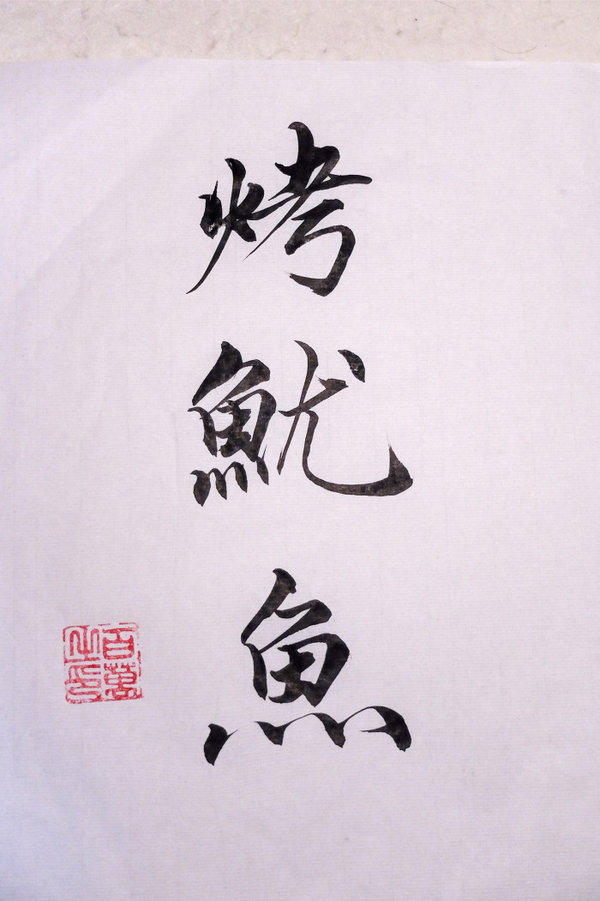 烤魷魚